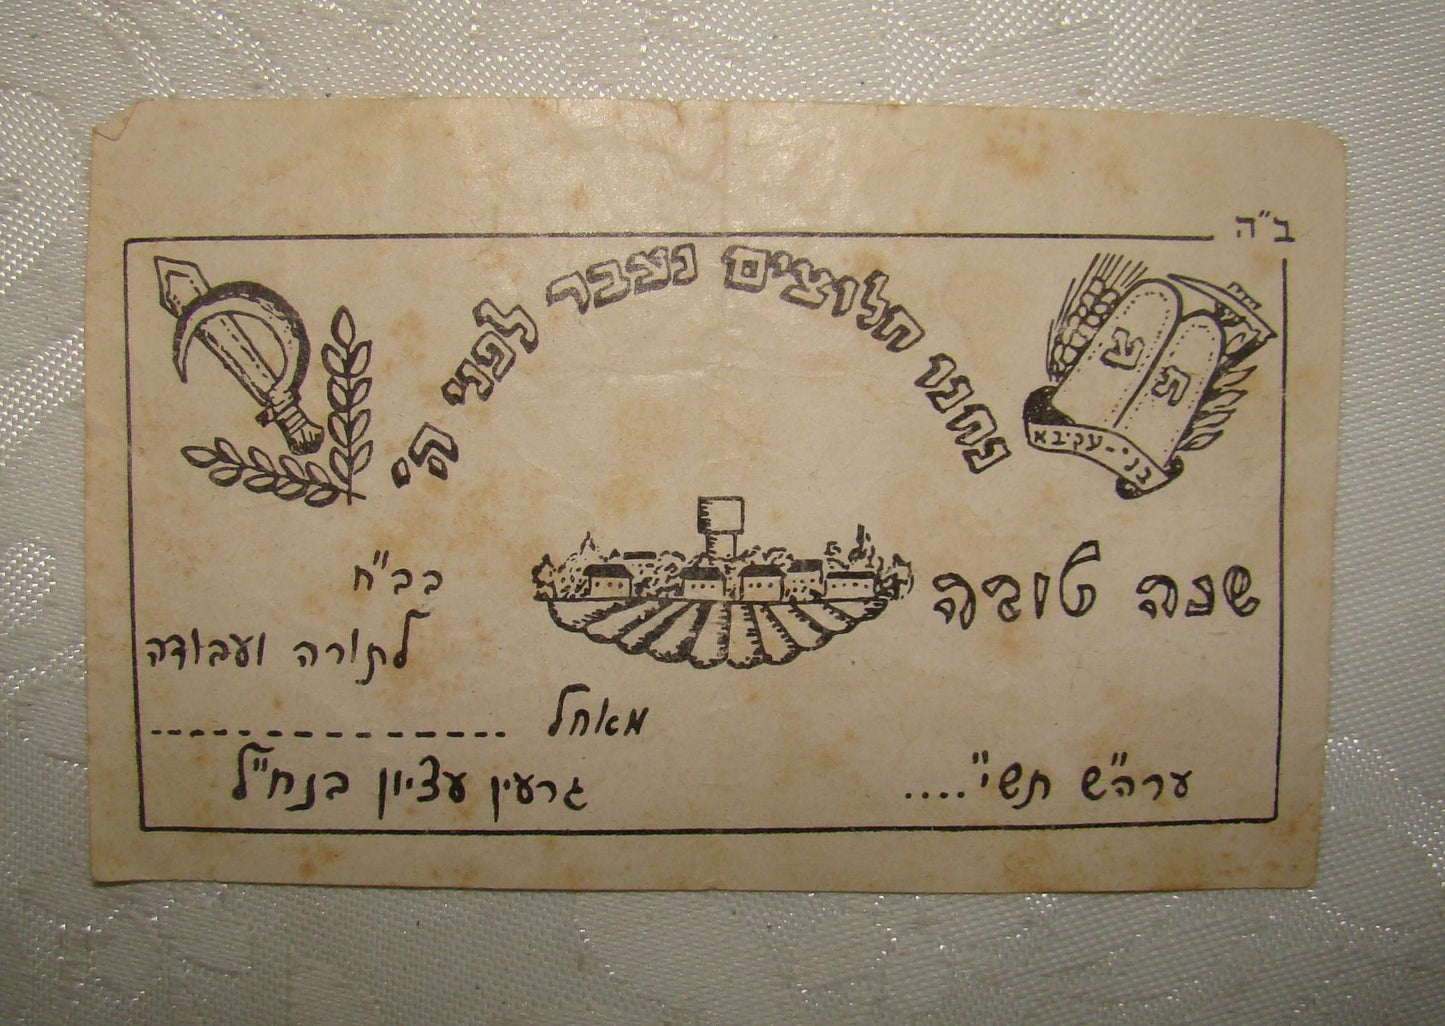 ב"ה
נחנו חלוצים נעבר לפני ה'
צ ת
בני-עקיבא
שנה טובה
בב"ח
לתורה ועבודה
מאחל
גרעין עציון בנח"ל
ערה"ש תשי"....